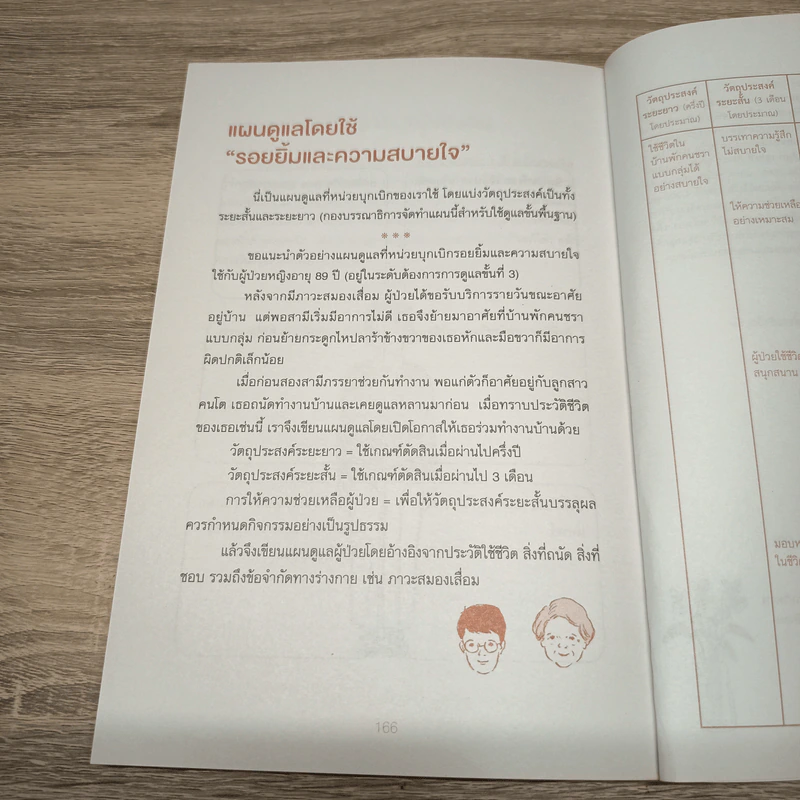 แผนดูแลโดยใช้
“รอยยิ้มและความสบายใจ”
นี่เป็นแผนดูแลที่หน่วยบุกเบิกของเราใช้ โดยแบ่งวัตถุประสงค์เป็นทั้ง
ระยะสั้นและระยะยาว (กองบรรณาธิการจัดทำแผนนี้สำหรับใช้ดูแลขั้นพื้นฐาน)
* * *
ขอแนะนำตัวอย่างแผนดูแลที่หน่วยบุกเบิกรอยยิ้มและความสบายใจ
ใช้กับผู้ป่วยหญิงอายุ 89 ปี (อยู่ในระดับต้องการการดูแลขั้นที่ 3)
หลังจากมีภาวะสมองเสื่อม ผู้ป่วยได้ขอรับบริการรายวันขณะอาศัย
อยู่บ้าน แต่พอสามีเริ่มมีอาการไม่ดี เธอจึงย้ายมาอาศัยที่บ้านพักคนชรา
แบบกลุ่ม ก่อนย้ายกระดูกไหปลาร้าข้างขวาของเธอหักและมือขวาก็มีอาการ
ผิดปกติเล็กน้อย
เมื่อก่อนสองสามีภรรยาช่วยกันทำงาน พอแก่ตัวก็อาศัยอยู่กับลูกสาว
คนโต เธอถนัดทำงานบ้านและเคยดูแลหลานมาก่อน เมื่อทราบประวัติชีวิต
ของเธอเช่นนี้ เราจึงเขียนแผนดูแลโดยเปิดโอกาสให้เธอร่วมทำงานบ้านด้วย
วัตถุประสงค์ระยะยาว = ใช้เกณฑ์ตัดสินเมื่อผ่านไปครึ่งปี
วัตถุประสงค์ระยะสั้น = ใช้เกณฑ์ตัดสินเมื่อผ่านไป 3 เดือน
การให้ความช่วยเหลือผู้ป่วย = เพื่อให้วัตถุประสงค์ระยะสั้นบรรลุผล
ควรกำหนดกิจกรรมอย่างเป็นรูปธรรม
แล้วจึงเขียนแผนดูแลผู้ป่วยโดยอ้างอิงจากประวัติใช้ชีวิต สิ่งที่ถนัด สิ่งที่
ชอบ รวมถึงข้อจำกัดทางร่างกาย เช่น ภาวะสมองเสื่อม
166
วัตถุประสงค์
ระยะยาว (ครึ่งปี
โดยประมาณ)
วัตถุประสงค์
ระยะสั้น (3 เดือน
โดยประมาณ)
ใช้ชีวิตใน
บ้านพักคนชรา
แบบกลุ่มได้
อย่างสบายใจ
บรรเทาความรู้สึก
ไม่สบายใจ
ให้ความช่วยเหลือ
อย่างเหมาะสม
ผู้ป่วยใช้ชีวิต
สนุกสนาน
ในชีวิ